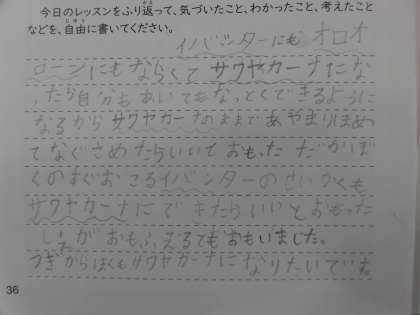 今日のレッスンをふり返って、気づいたこと、わかったこと、考えたこと
などを、自由に書いてください。
イバンターにもオロオ
ローンにもならくてサワヤカーナにな
ったら自分もあいてもなっとくできるように
なるからサワヤカーナのままであやまりほめ
てなぐさめたらいいておもった だかぼ
くのすぐおこるイバンターのせいかくも
サワヤカーナにできたらいいとおもった
しが おもふえるてもおもいました。
つぎからぼくもサワヤカーナになりたいていね
36